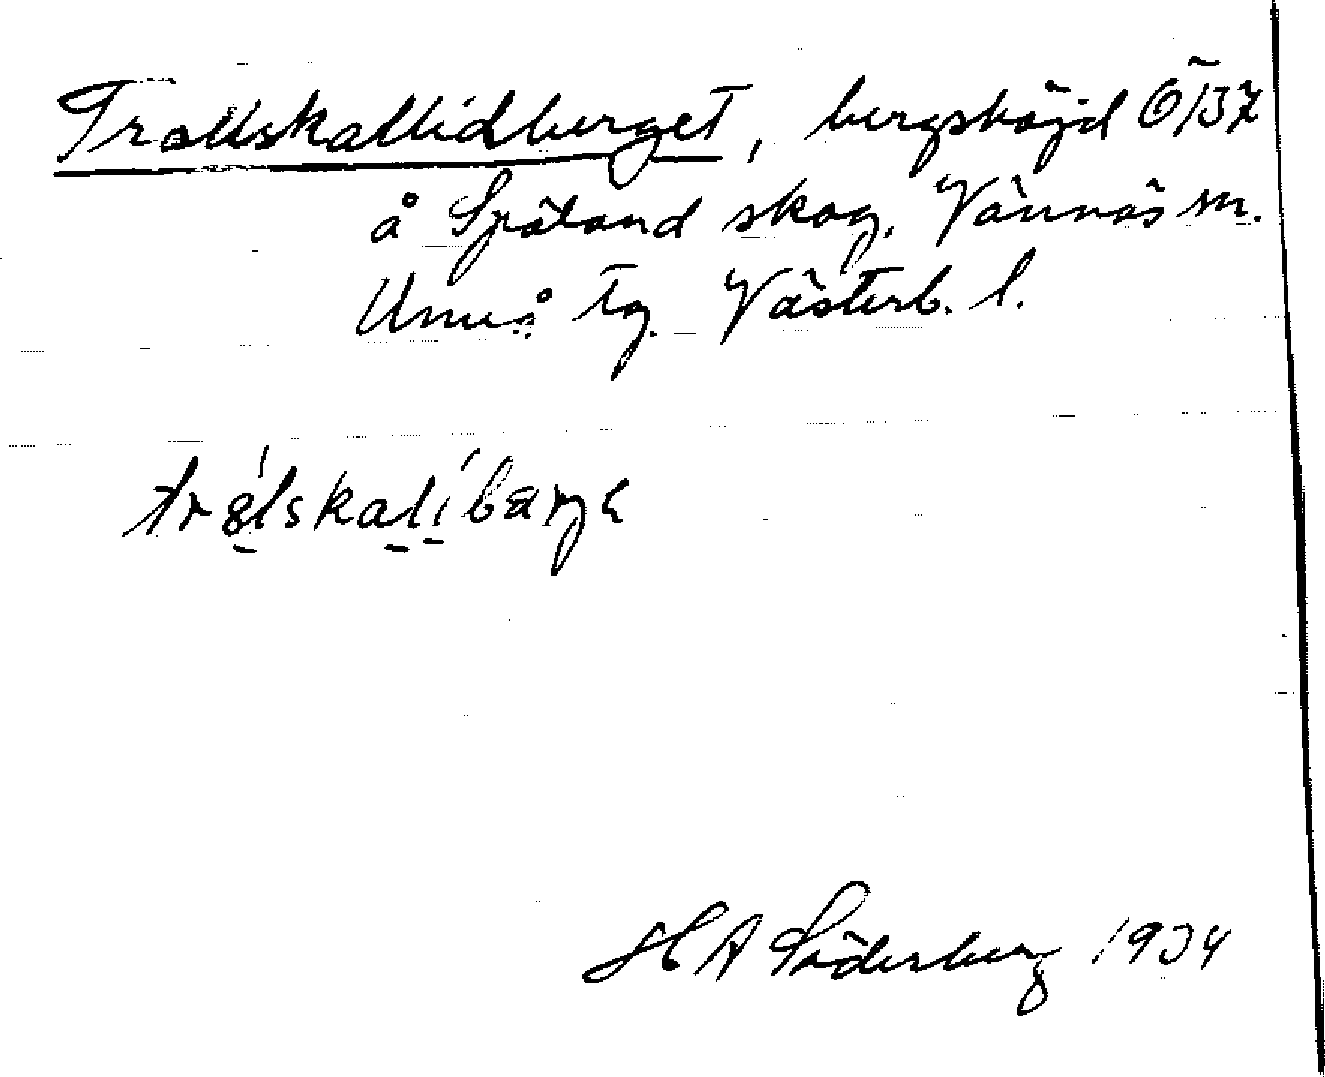 Trollskallidberget, bergshöjd Ö/37
å Spöland skog, Vännäs sn.
Umeå tg. Västerb. l.
trålskalíbærjɛ
H A Söderberg 1934